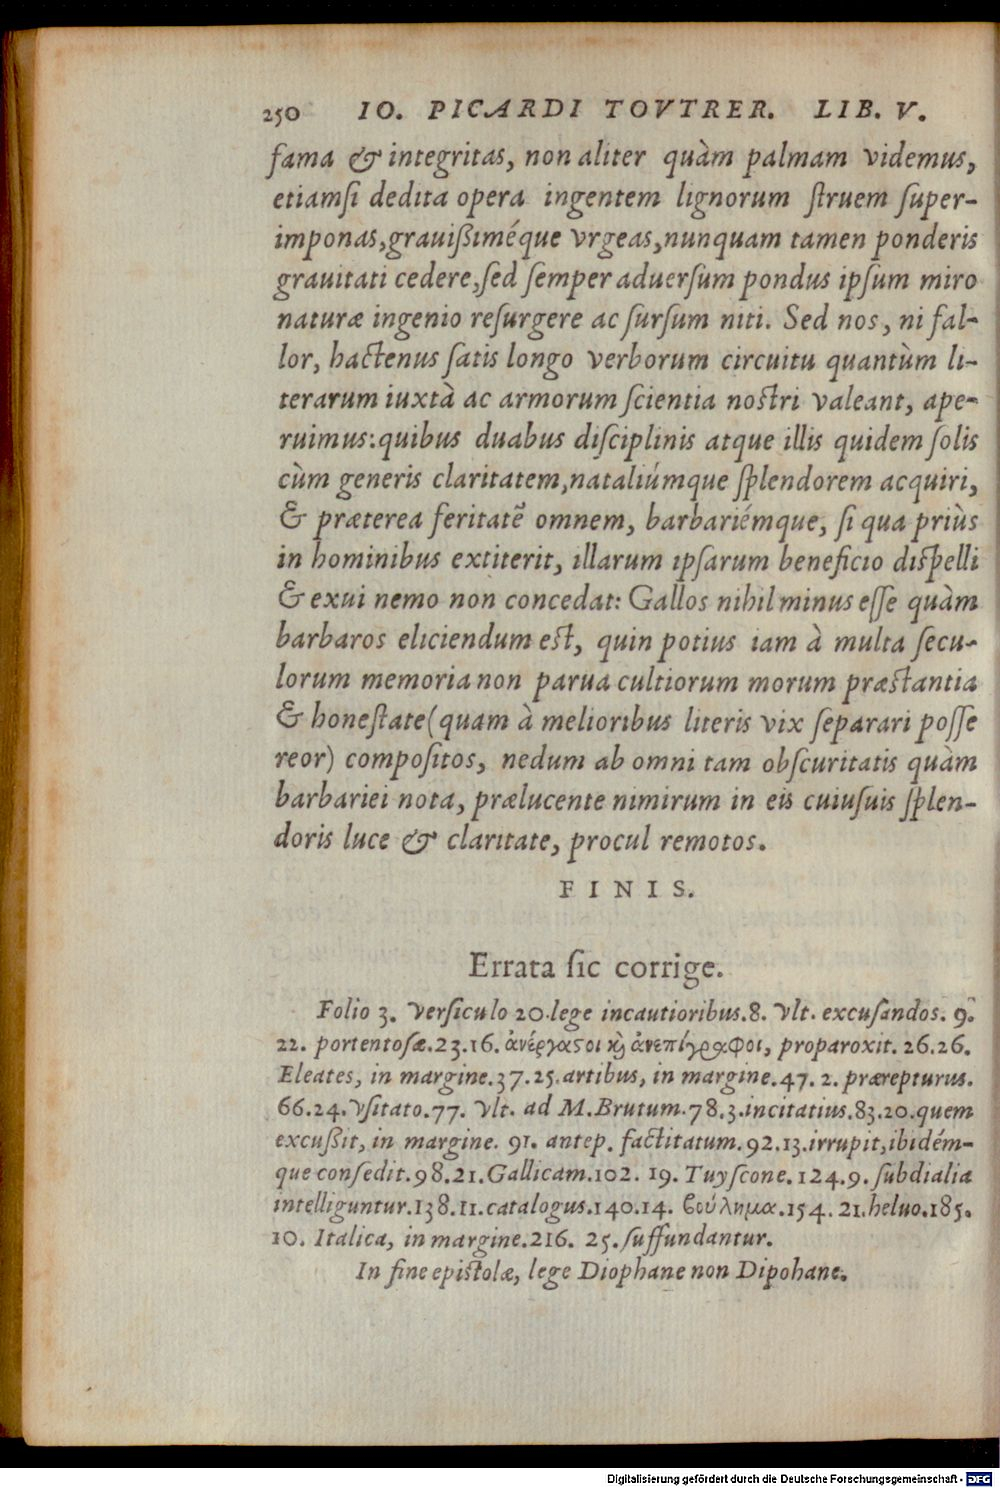 250 IO. PICARDI TOVTRER. LIB. V.
fama & integritas, non aliter quàm palmam videmus,
etiamſi dedita opera ingentem lignorum ſtruem ſuper-
imponas, grauißiméque vrgeas, nunquam tamen ponderis
grauitati cedere, ſed ſemper aduerſum pondus ipſum miro
naturæ ingenio reſurgere ac ſurſum niti. Sed nos, ni fal-
lor, hactenus ſatis longo verborum circuitu quantùm li-
terarum iuxtà ac armorum ſcientia noſtri valeant, ape-
ruimus: quibus duabus diſciplinis atque illis quidem ſolis
cùm generis claritatem, nataliúmque ſplendorem acquiri,
& præterea feritatē omnem, barbariémque, ſi qua priùs
in hominibus extiterit, illarum ipſarum beneficio diſpelli
& exui nemo non concedat: Gallos nihil minus eſſe quàm
barbaros eliciendum eſt, quin potius iam à multa ſecu-
lorum memoria non parua cultiorum morum præſtantia
& honeſtate (quam à melioribus literis vix ſeparari poſſe
reor) compoſitos, nedum ab omni tam obſcuritatis quàm
barbariei nota, prælucente nimirum in eis cuiuſuis ſplen-
doris luce & claritate, procul remotos.
FINIS.
Errata ſic corrige.
Folio 3. verſiculo 20. lege incautioribus. 8. vlt. excuſandos. 9.
22. portentoſæ. 23. 16. ἀνέργαστοι καὶ ἀνεπίγραφοι, proparoxit. 26. 26.
Eleates, in margine. 37. 25. artibus, in margine. 47. 2. prærepturus.
66. 24. vſitato. 77. vlt. ad M. Brutum. 78. 3. incitatius. 83. 20. quem
excußit, in margine. 91. antep. factitatum. 92. 13. irrupit, ibidém-
que conſedit. 98. 21. Gallicam. 102. 19. Tuyſcone. 124. 9. ſubdialia
intelliguntur. 138. 11. catalogus. 140. 14. βούλημα. 154. 21. heluo. 185.
10. Italica, in margine. 216. 25. ſuffundantur.
In fine epiſtolæ, lege Diophane non Dipohane.
Digitalisierung gefördert durch die Deutsche Forschungsgemeinschaft - DFG